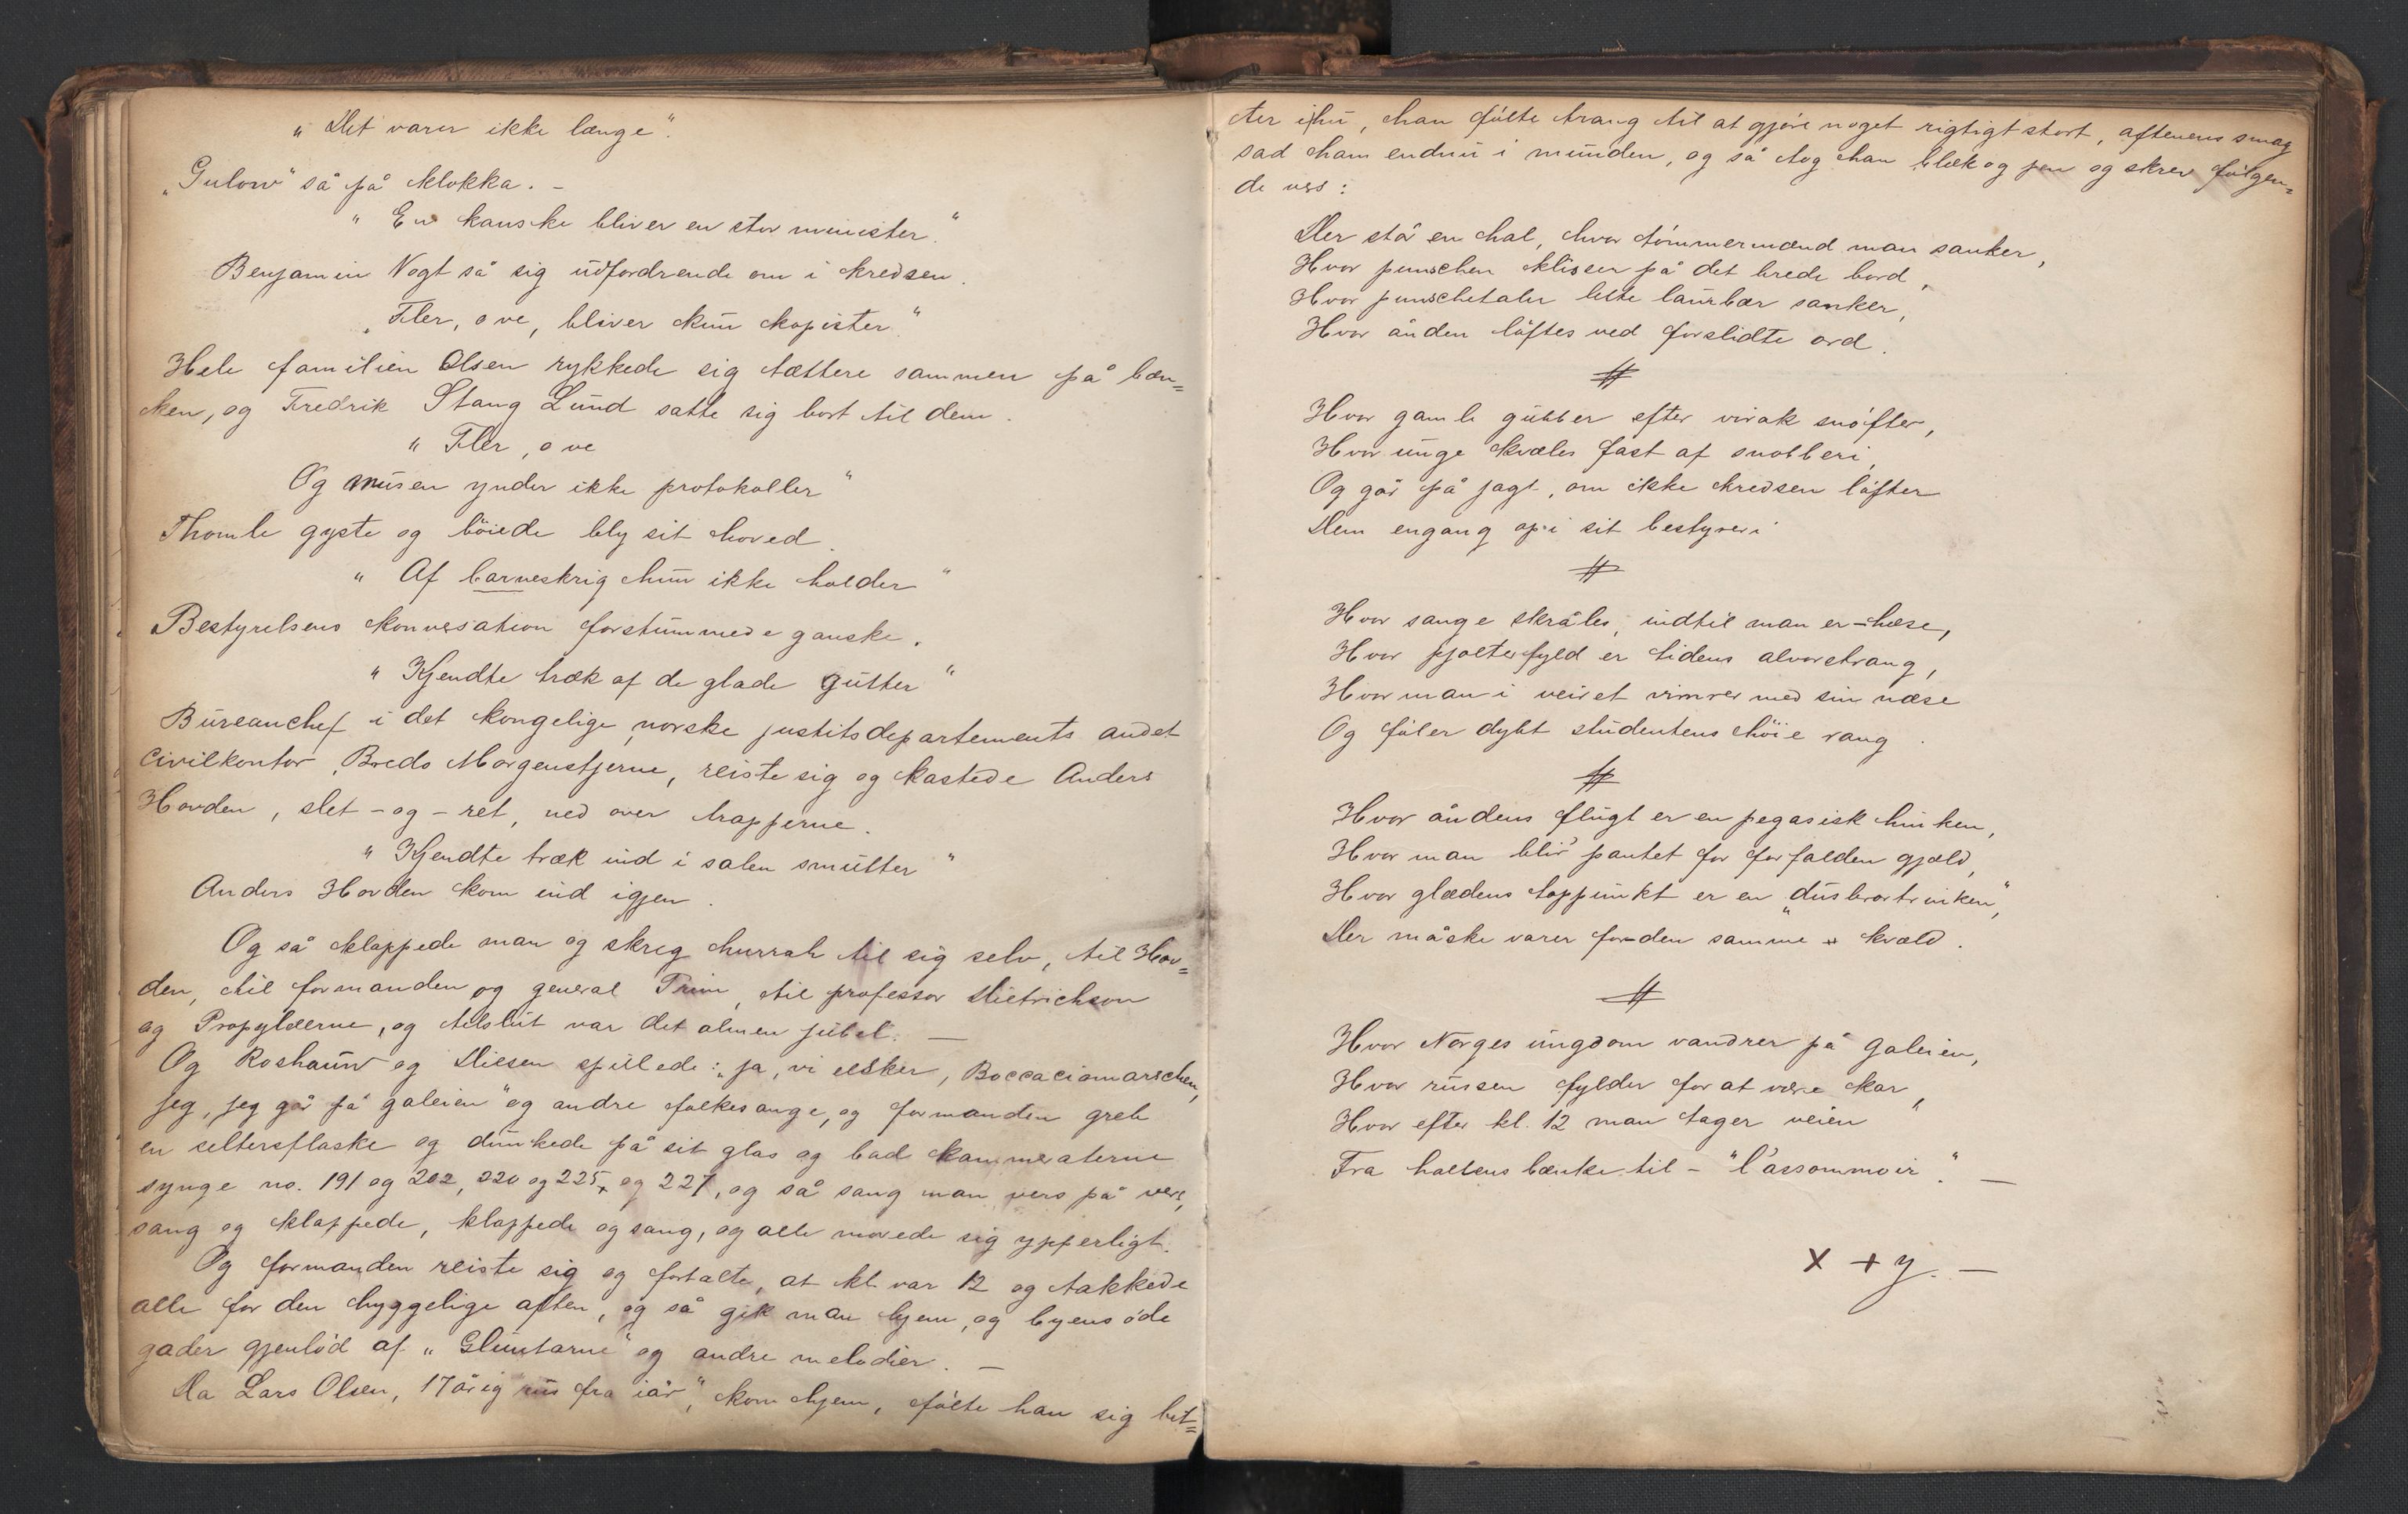 „Det varer ikke længe“.
„Gulow“ så på klokka. –
„En kanske bliver en stor minister.“
Benjamin Vogt så sig udfordrende om i kredsen.
„Fler, o ve, bliver kun kopister“
Hele familien Olsen rykkede sig tættere sammen på bæn=
ken, og Fredrik Stang Lund satte sig bort til dem.
„Fler, o ve
Og musen ynder ikke protokoller“
Thomle gyste og böiede bly sit hoved.
„Af barneskrig hun ikke holder“
Bestyrelsens konversation forstummede ganske.
„Kjendte træk af de glade gutter“
Bureauchef i det kongelige norske justitsdepartements andet
civilkontor, Bredo Morgenstjerne, reiste sig og kastede Anders
Hovden, slet-og-ret, ned over trapperne.
„Kjendte træk ind i salen smutter“
Anders Hovden kom ind igjen.
Og så klappede man og skreg hurrah til sig selv, til Hov=
den, til formanden og general Prim, til professor Dietrichson
og Propylæerne, og tilslut var det almen jubel. —
Og Roshauw og Diesen spillede: „Ja, vi elsker, Boccaciomarschen,
jeg, jeg går på galeien“ og andre folkesange, og formanden greb
en seltersflaske og dunkede på sit glas og bad kammeraterne
synge no. 191 og 202, 220 og 225, og 227, og så sang man vers på vers,
sang og klappede, klappede og sang, og alle morede sig ypperligt.
Og formanden reiste sig og fortalte, at kl. var 12 og takkede
alle for den hyggelige aften, og så gik man hjem, og byens öde
gader gjenlöd af „Gluntarne“ og andre melodier. —
Da Lars Olsen, 17årig „rus fra iår“, kom hjem, fölte han sig bet=
ter ihu, han fölte trang til at gjöre noget rigtigt stort, aftenens smag
sad ham endnu i munden, og så tog han blæk og pen og skrev fölgen=
de vers:
Der står en hal, hvor tömmermænd man sanker,
Hvor punschen klisser på det brede bord,
Hvor punschetaler lette laurbær sanker,
Hvor ånden löftes ved forslidte ord.
#
Hvor gamle gubber efter virak snöfter,
Hvor unge kvæles fast af snobberi,
Og går på jagt, om ikke kredsen löfter
Dem engang op i sit bestyreri
#
Hvor sange skråles, indtil man er – hæse,
Hvor pjolterfyld er tidens alvorstrang,
Hvor man i veiret vimrer med sin næse
Og föler dybt studentens höie rang.
#
Hvor åndens flugt er en pegasisk hinken,
Hvor man blir pantet for forfalden gjæld,
Hvor glædens toppunkt er en „dusbrortrinken“,
Der måske varer for den samme kvæld.
#
Hvor Norges ungdom vandrer på galeien,
Hvor russen fylder for at være kar,
Hvor efter kl. 12 man tager veien
Fra hallens bænke til – "l'assommoir". —
x + y. —